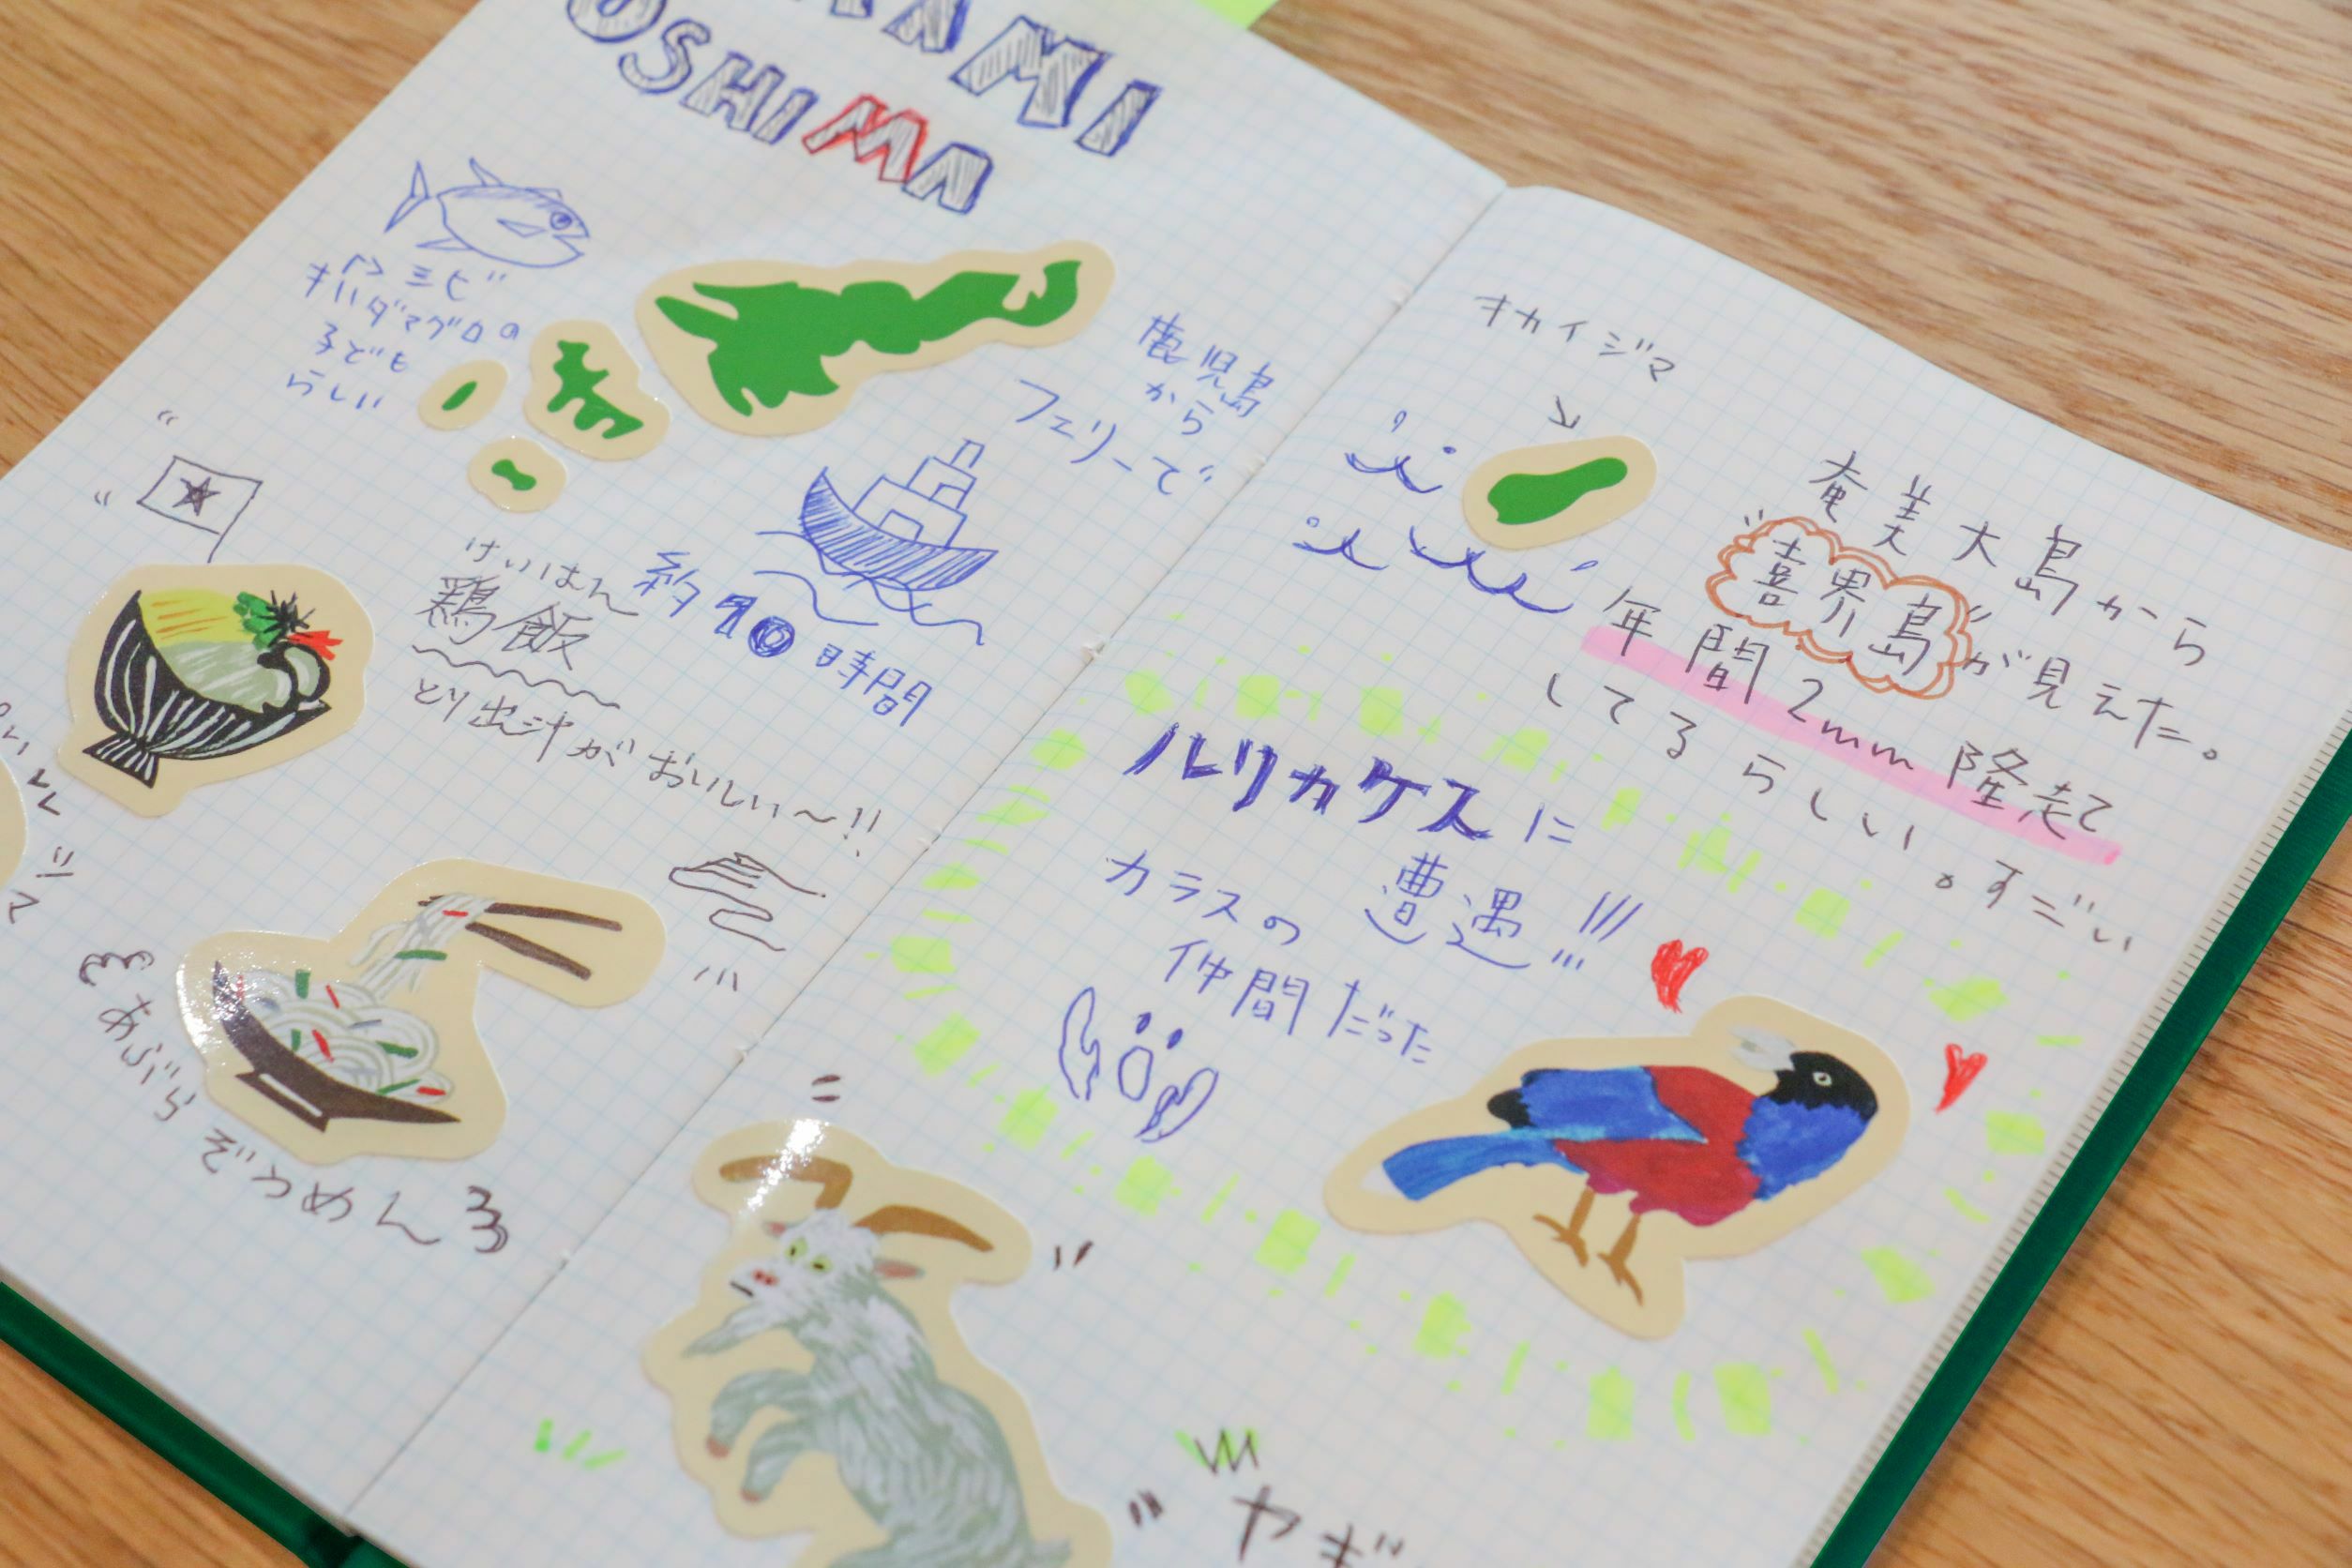 AMI
OSHIMA
シビ
キハダマグロの
子ども
らしい
鹿児島
から
フェリーで
約10時間
けいはん
鶏飯
とり出汁がおいしい〜!!
あぶら
ぞうめん
キカイジマ
奄美大島から
喜界島が見えた。
年間2mm隆起
してるらしい。すごい
ルリカケスに
遭遇!!!
カラスの
仲間だった
ヤギ